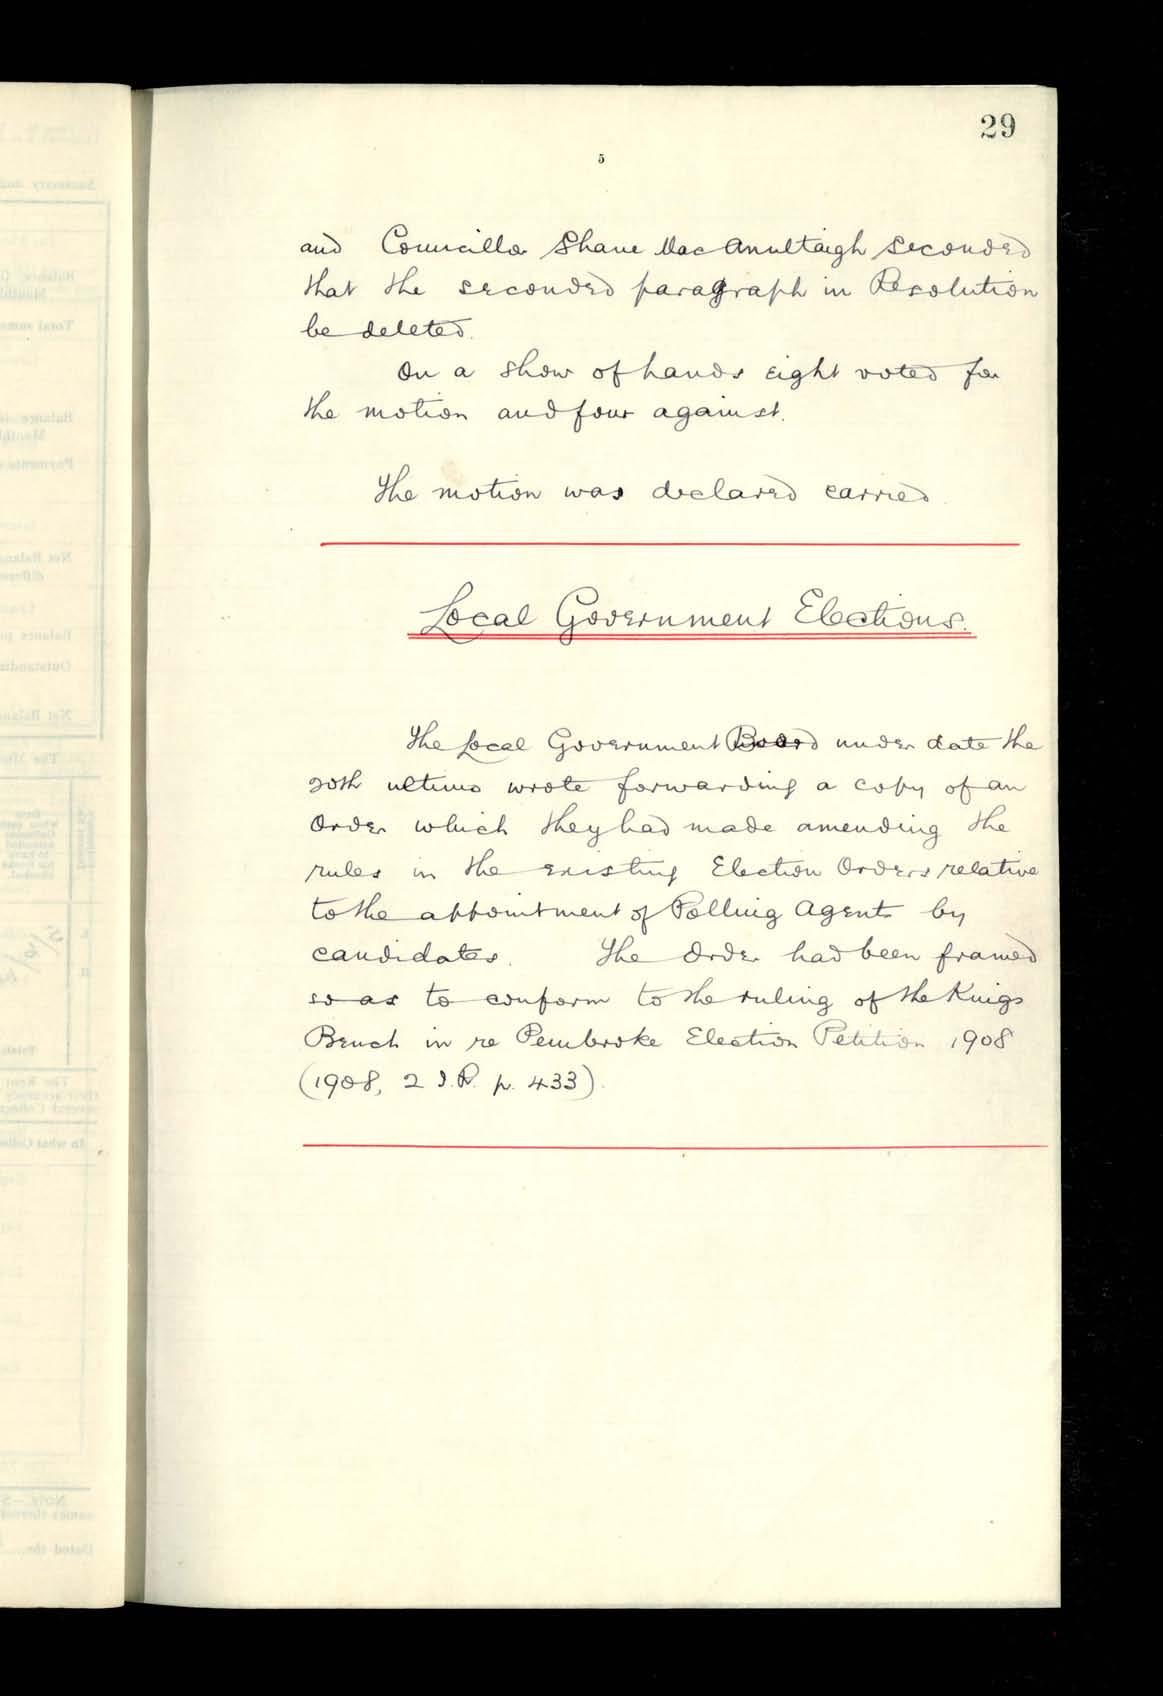 29
5
and Councillor Shane MacAnultaigh seconded
that the seconded paragraph in Resolution
be deleted.
On a show of hands eight voted for
the motion and four against.
The motion was declared carried
Local Government Elections.
The Local Government Board under date the
20th ultimo wrote forwarding a copy of an
Order which they had made amending the
rules in the existing Election Orders relative
to the appointment of Polling Agents by
candidates. The Order had been framed
so as to conform to the ruling of the Kings
Bench in re Pembroke Election Petition 1908
(1908, 2 I.R. p. 433).